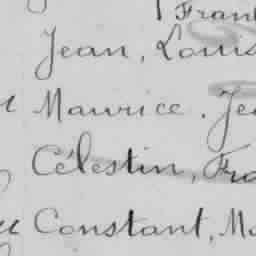 Fran
Jean, Louis
Maurice, Je
Célestin, Fra
Constant, Ma